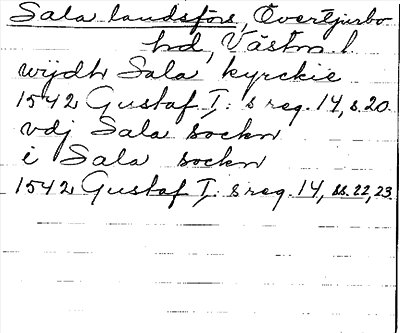 Sala landsförs, Övertjurbo
hd, Västm. l.
wijdh Sala kyrckie
1542 Gustaf I: s reg. 14, s. 20.
vdj Sala sockn
i Sala sockn
1542 Gustaf I: s reg. 14, ss. 22, 23.